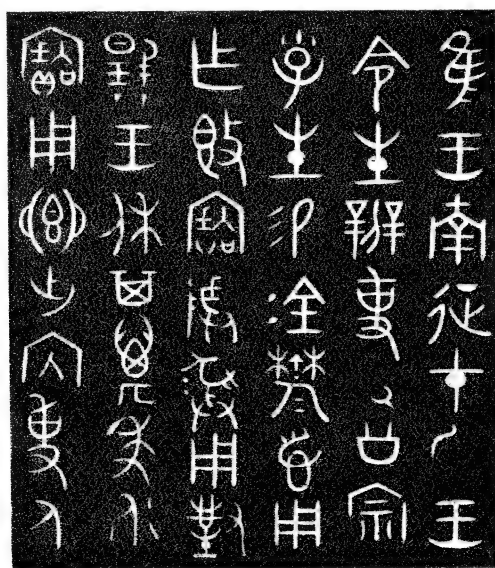 隹王南征才王
令生辨事氒公宗
小子生易金鬱鬯用
乍𣪘寶尊彝用對
揚王休其萬年永
寶用鄉出內事人